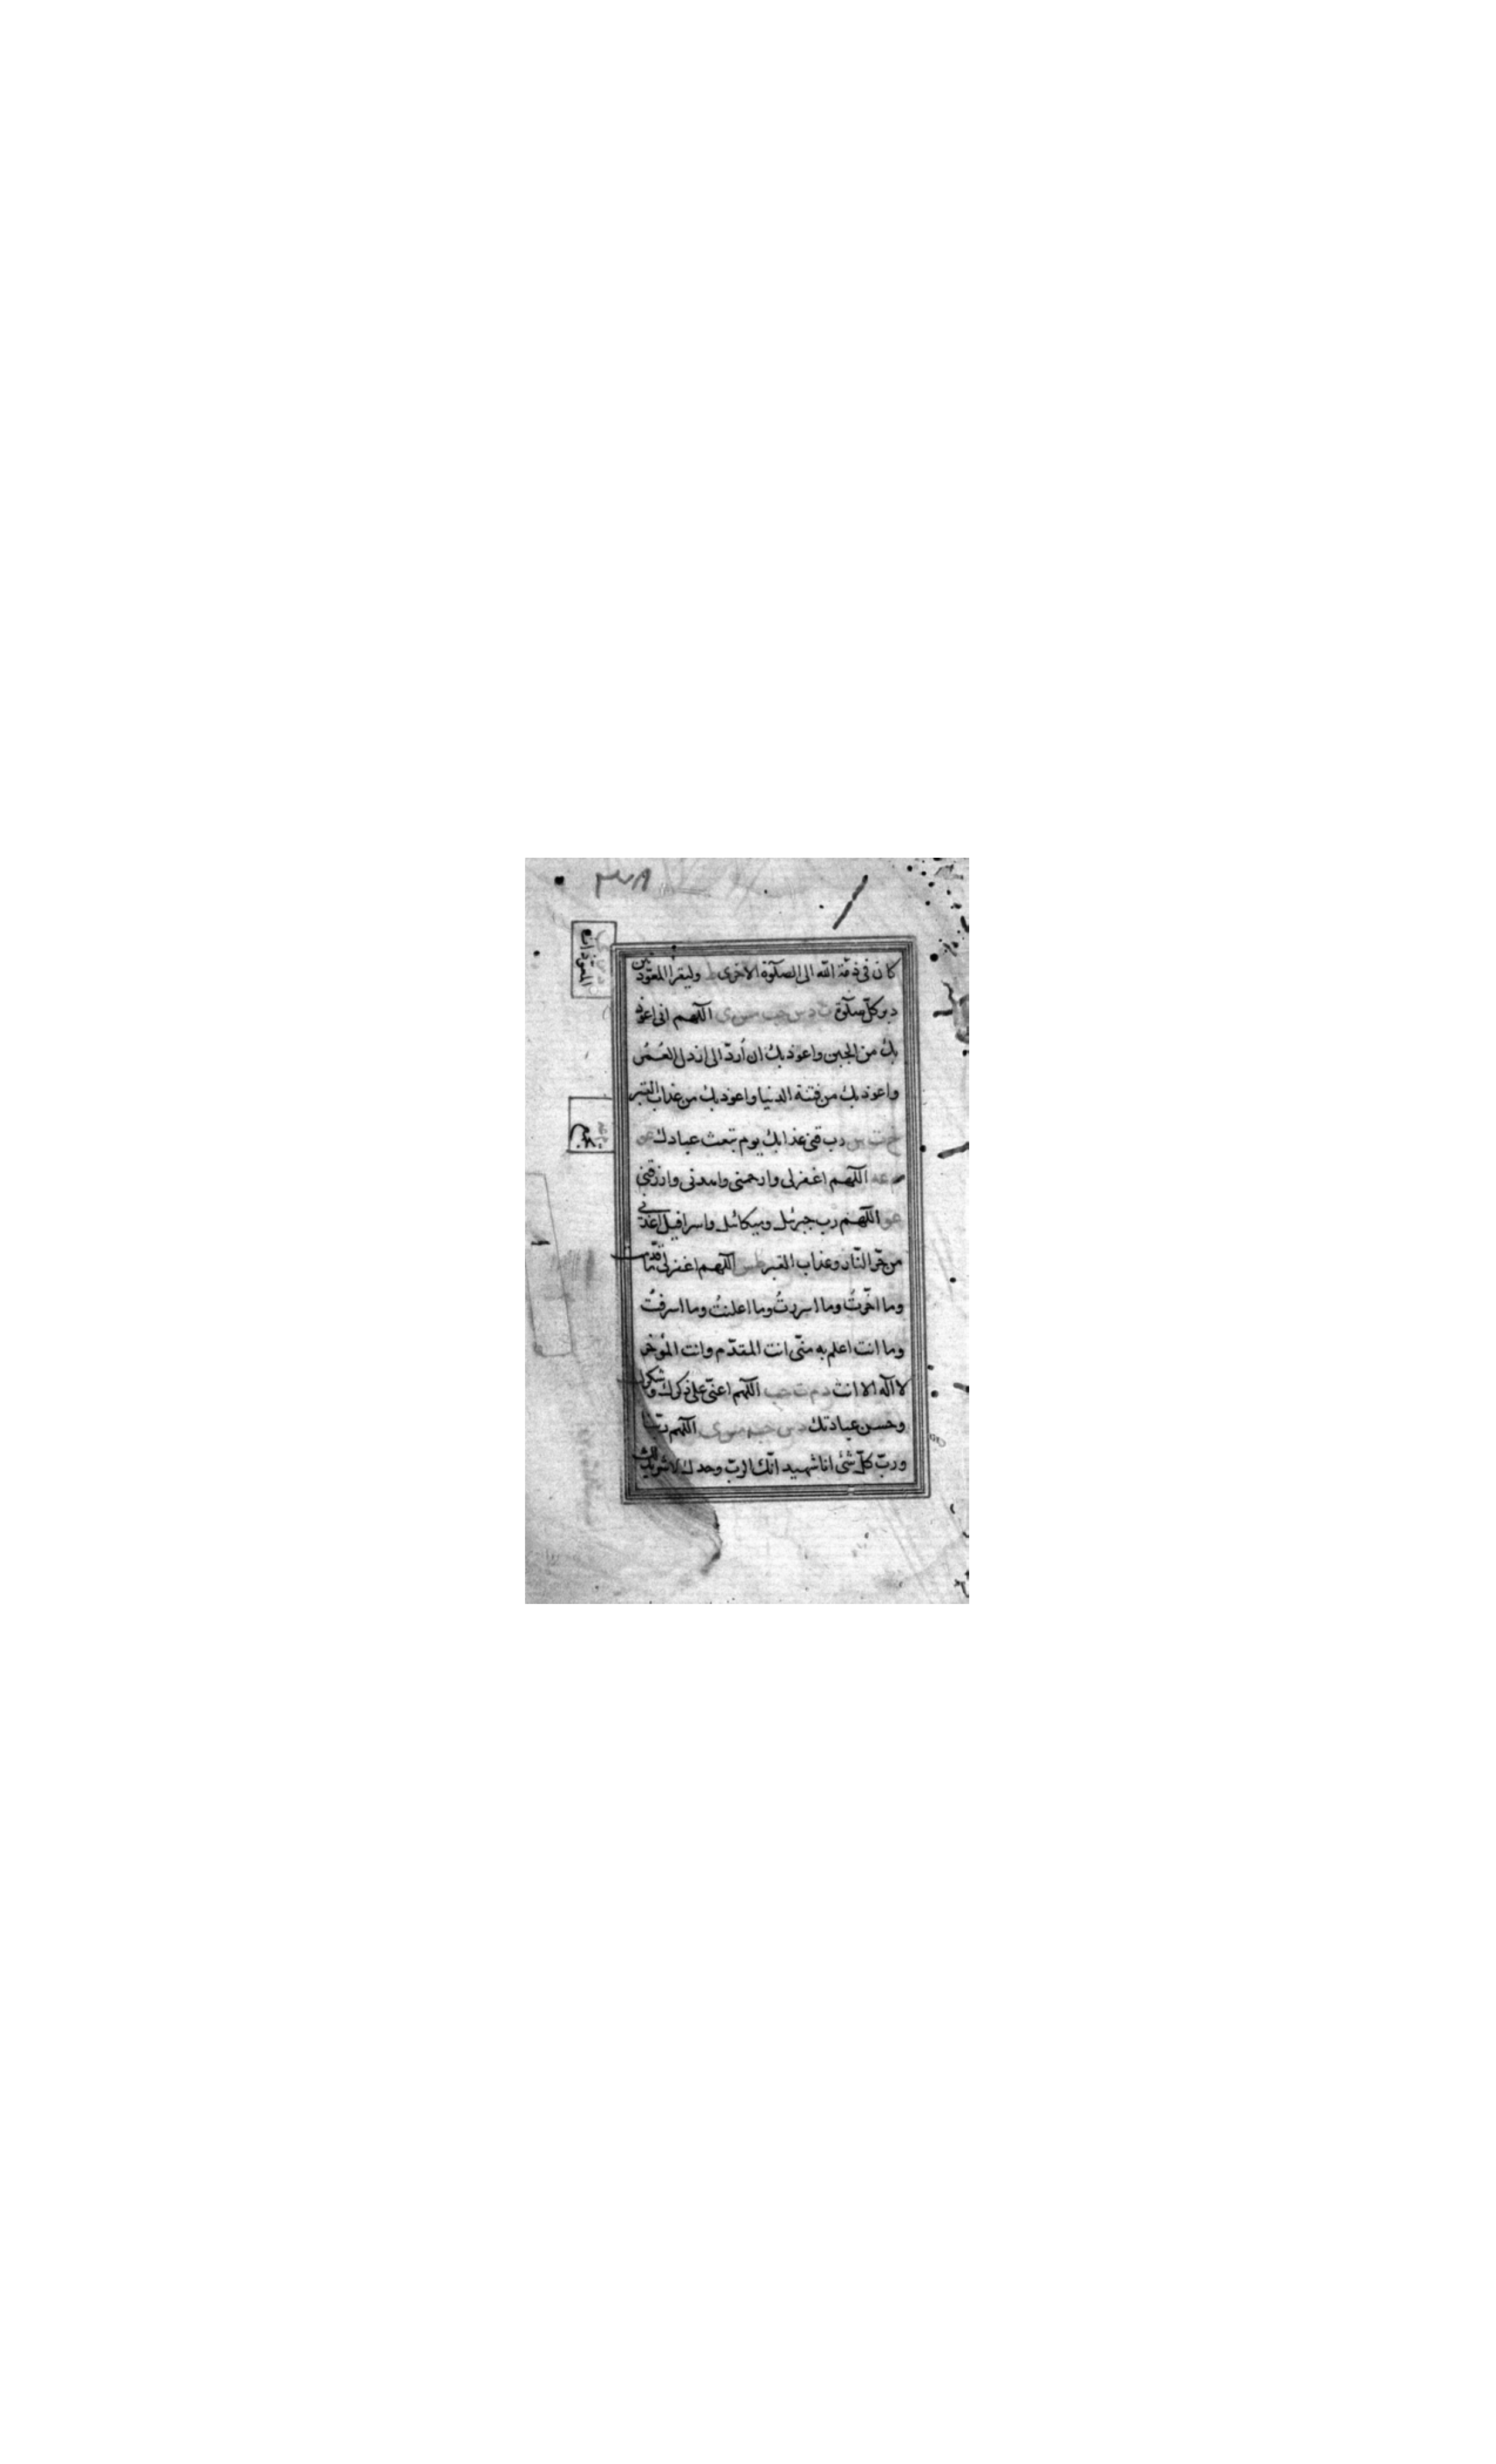 كان فى ذمّة الله الى الصلوة الاخرى ط وليقرأ المعوّذتين
دبر كلّ صلوة ت د س حب مس ى اللّهم انى اعوذ
بك من الجبن واعوذ بك ان أردّ الى ارذل العُمُر
واعوذ بك من فتنة الدنيا واعوذ بك من عذاب القبر
خ ت س رب قنى عذابك يوم تبعث عبادك عو
م عه اللّهم اغفرلى وارحمنى واهدنى وارزقنى
عو اللّهم رب جبرئل وميكائل واسرافيل اعذنى
من حرّ النّار وعذاب القبر طس اللّهم اغفرلى ما قدّمت
وما اخّرتُ وما اسررتُ وما اعلنتُ وما اسرفتُ
وما انت اعلم به منّى انت المقدّم وانت المؤخر
لا اله الا انت د م ت حب اللّهم اعنّى على ذكرك وشكرك
وحسن عبادتك د س حب مس ى اللّهم ربّنا
وربّ كلّ شئ انا شهيد انّك الربّ وحدك لا شريك لك
المعوّذات